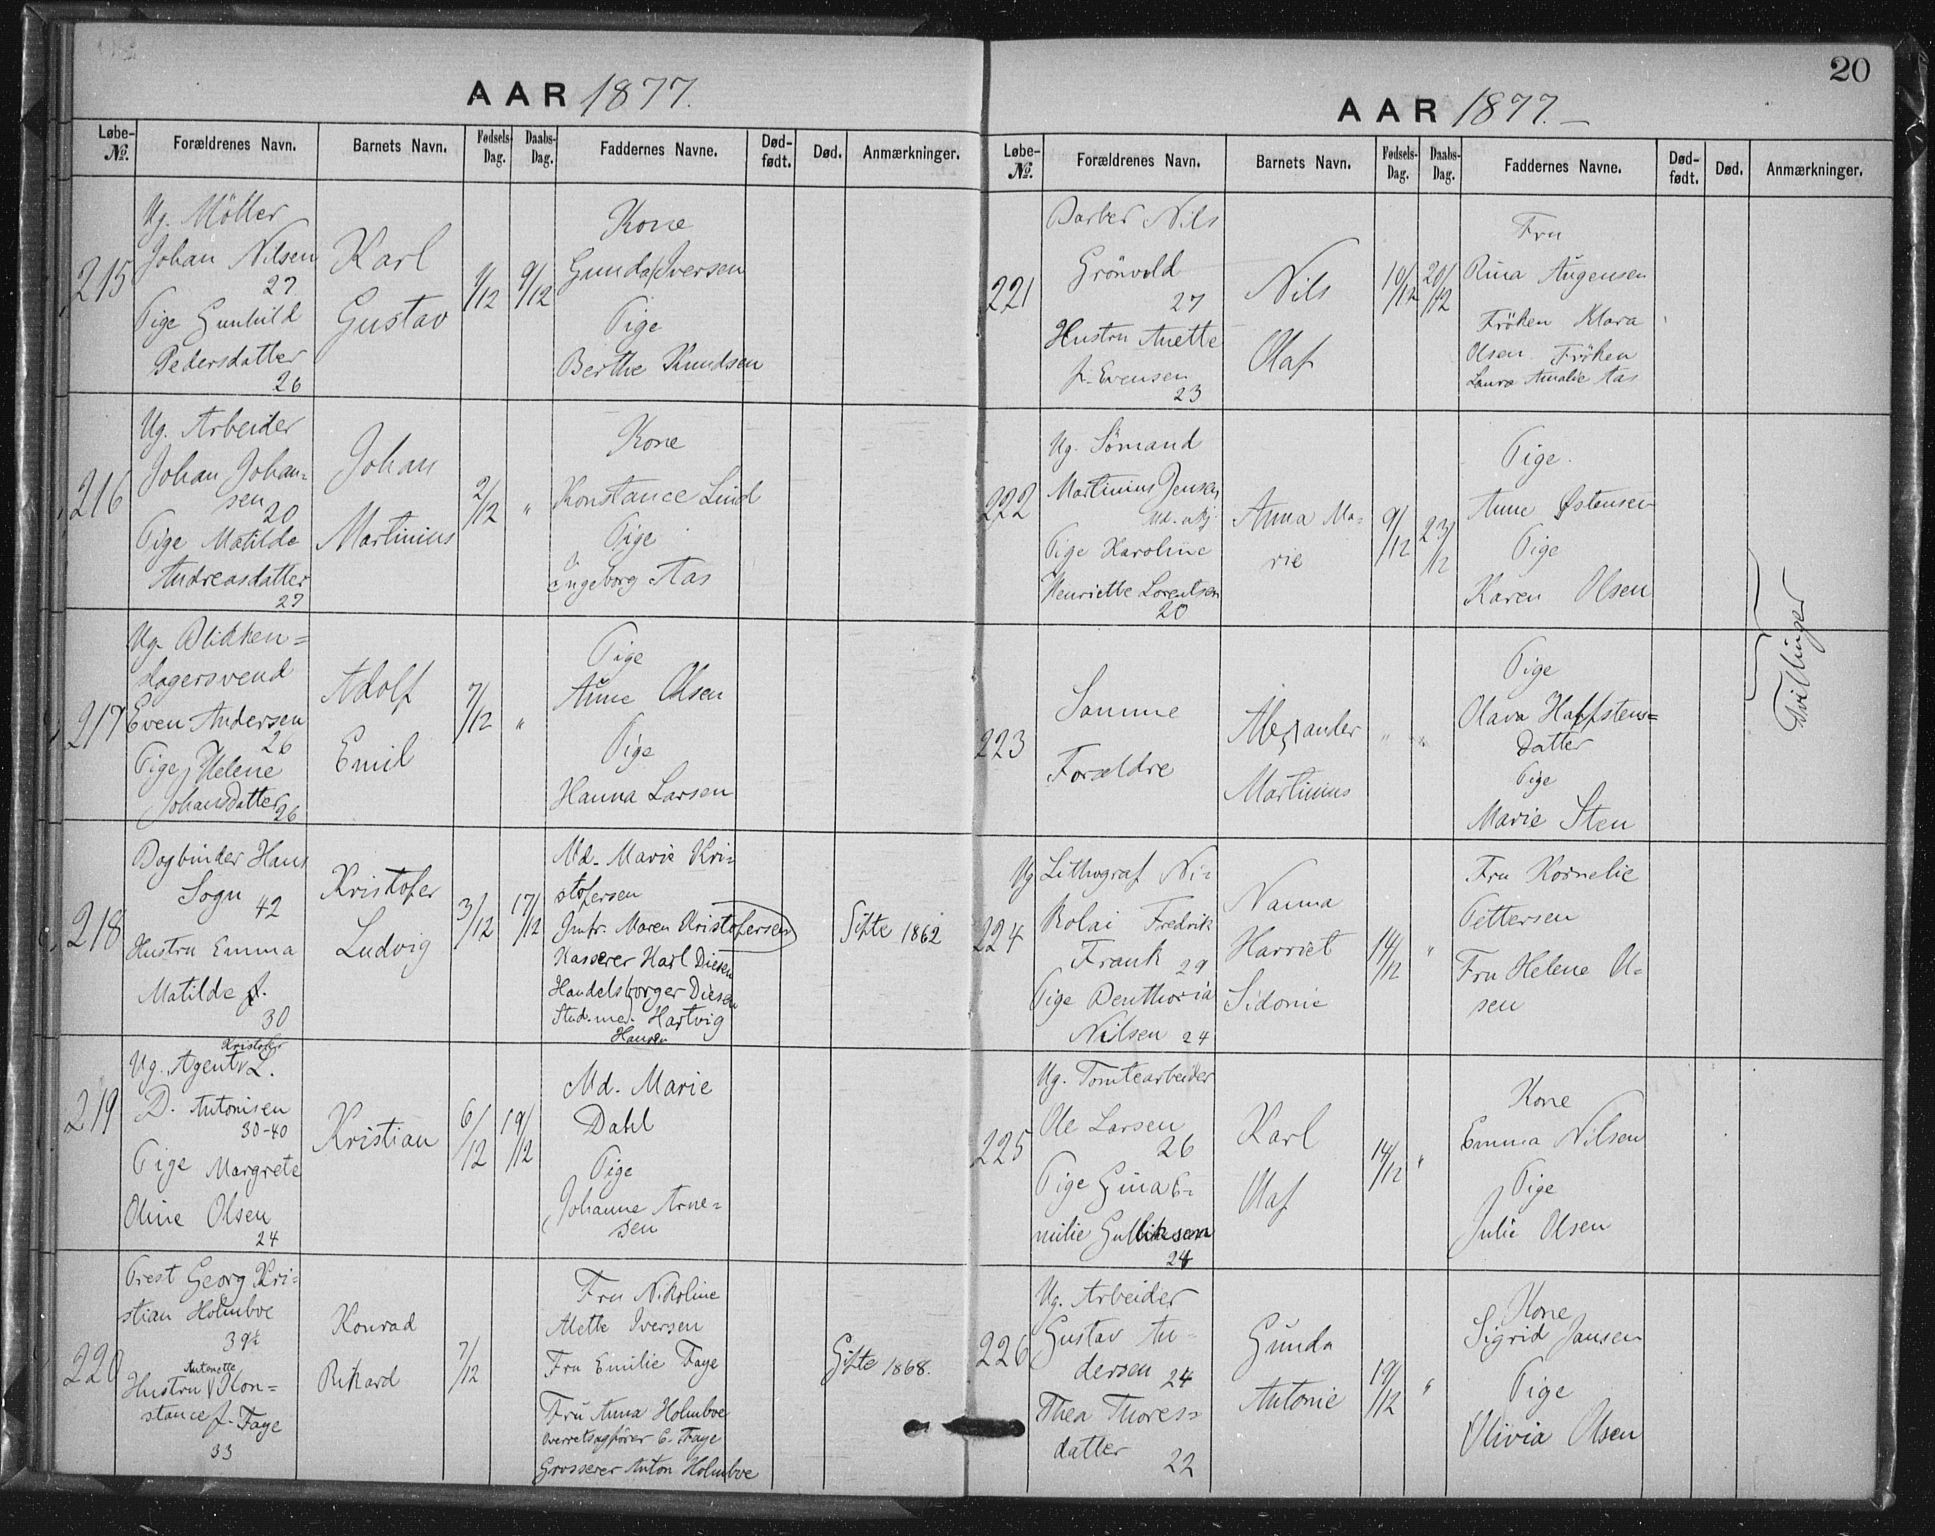 AAR 1877.
Løbe-№. Forældrenes Navn. Barnets Navn. Fødsels-Dag. Daabs-Dag. Faddernes Navne. Død-født. Død. Anmærkninger.
215
Ug. Möller
Johan Nilsen
27
Pige Gunhild
Pedersdatter
26
Karl
Gustav
1/12
9/12
Kone
Gunda Iversen
Pige
Berthe Knudsen
216
Ug. Arbeider
Johan Johan=
sen
20
Pige Matilde
Andreasdatter
27
Johan
Martinius
2/12
"
Kone
Konstance Lind
Pige
Ingeborg Aas
217
Ug. Blikken=
slagersvend
Even Andersen
26
Pige Helene
Johansdatter
26
Adolf
Emil
7/12
"
Pige
Anne Olsen
Pige
Hanna Larsen
218
Bogbinder Hans
Sogn 42
Hustru Emma
Matilde f.
30
Kristofer
Ludvig
3/12
17/12
Md. Marie Kri-
stofersen
Jmfr. Maren Kristofersen
Kasserer Karl Diesen
Handelsborger Diesen
Stud. med. Hartvig
Hansen
Gifte 1862
219
Kristofer
Ug. Agent L.
D. Antonisen
30-40
Pige Margrete
Oline Olsen
24
Kristian
6/12
19/12
Md. Marie
Dahl
Pige
Johanne Arne=
sen
220
Prest Georg Kri-
stian Holmboe
39½
Antonette
Hustru Kon=
stance f. Faye
33
Konrad
Rikard
7/12
Fru Nikoline
Alette Iversen
Fru Emilie Faye
Fru Anna Holmboe
Overretssagfører C. Faye
Grosserer Anton Holmboe
Gifte 1868.
20
AAR 1877.-
Løbe-№. Forældrenes Navn. Barnets Navn. Fødsels-Dag. Daabs-Dag. Faddernes Navne. Død-født. Død. Anmærkninger.
221
Barber Nils
Grönvold
27
Hustru Anette
f. Evensen
23
Nils
Olaf
10/12
20/12
Fru
Rina Augensen
Fröken Klara
Olsen Fröken
Laura Amalie Aas
222
Ug. Sömand
Martinius Jensen
Pige Karoline
Henriette Lorentsen
20
Anna Ma-
rie
9/12
23/12
Pige
Anne Østensen
Pige
Karen Olsen
Tvillinger
223
Samme
Forældre
Alexander
Martinius
" "
Pige
Olava Haffstens=
datter
Pige
Marie Sten
224
Ug Lithograf Ni-
kolai Fredrik
Frank 29
Pige Benthoria
Nilsen 24
Nanna
Harriet
Sidonie
14/12
"
Fru Kornelie
Pettersen
Fru Helene Ol=
sen
225
Ug. Tomtearbeider
Ole Larsen
26
Pige Gina E-
milie Gulliksen
24
Karl
Olaf
14/12
"
Kone
Emma Nilsen
Pige
Julie Olsen
226
Ug. Arbeider
Gustav An-
dersen 24
Thea Thores=
datter
22
Gunda
Antonie
19/12
"
Kone
Sigrid Jansen
Pige
Olivia Olsen